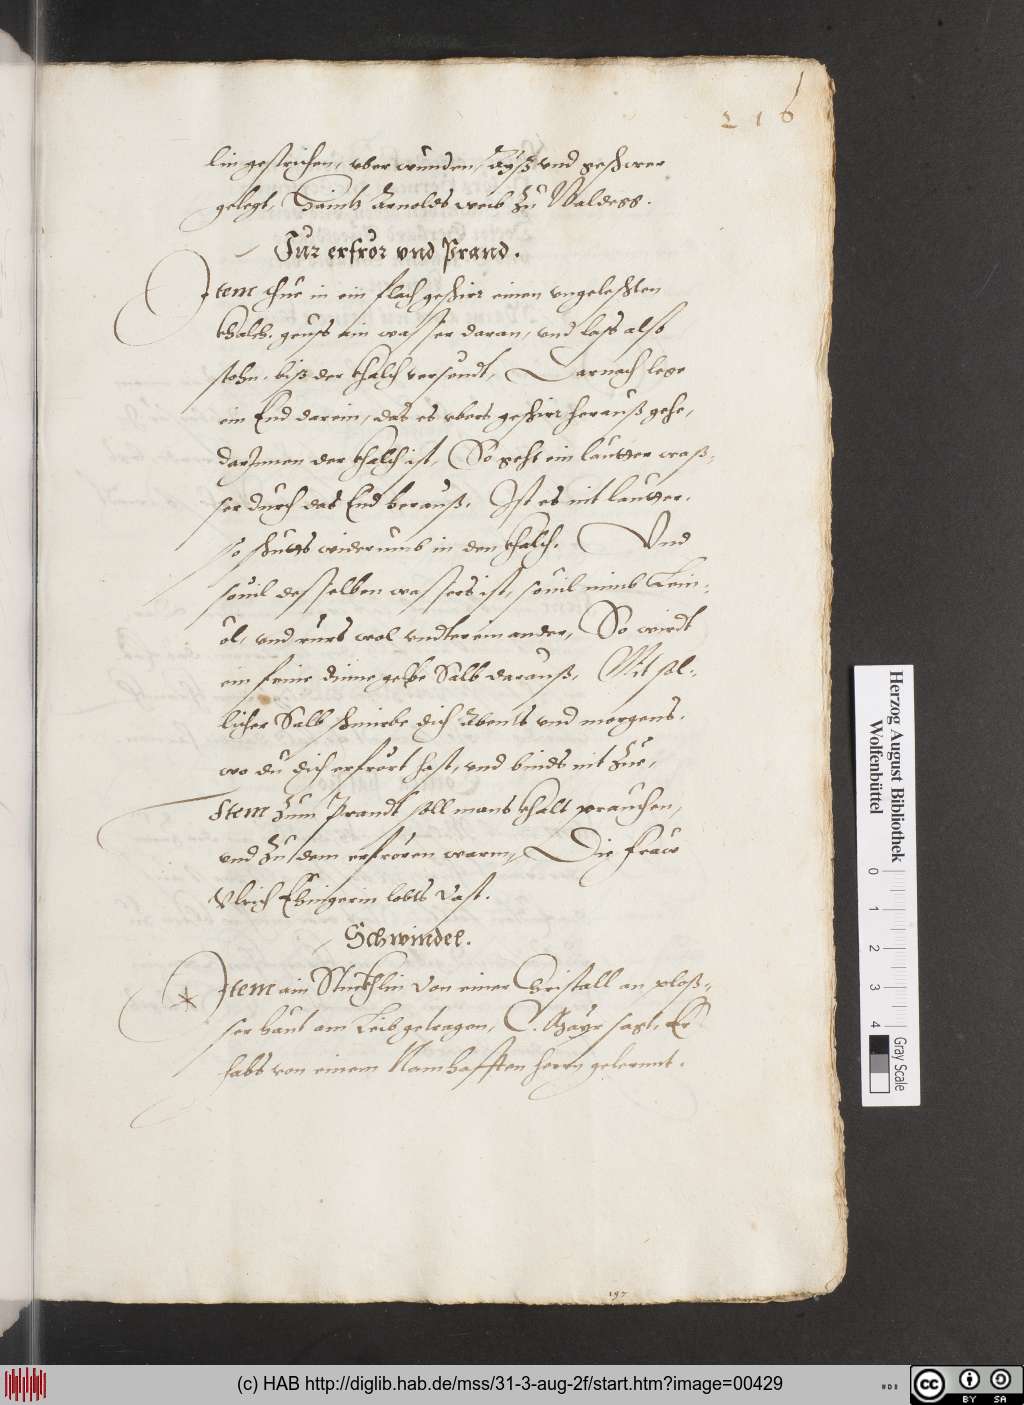 216
lin gestrichen, vber wunden, Aÿß vnd geschwer
gelegt, Haintz Arnolds weib zu Waldess.
Für erfror vnd Prand.
Item thue in ein flach geschirr einen vngeleschten
khalch, geuss ein wasser daran, vnd lass also
stehn, biß der khalch versendt, Darnach lege
ein End darein, das es vbers geschirr herauß gehe,
darInnen der khalch ist, So geht ein lautter waß-
ser durch das End herauß. Ist es nit lautter,
so schutts widerumb in den khalch. Vnd
souil desselben wassers ist, souil nimb Lein-
öl, vnd rurs wol vndter ein ander, So wirdt
ein feine dinne gelbe Salb darauß, Mit sol-
licher Salb schmirbe dich Abents vnd morgens,
wo du dich erfrört hast, vnd binds nit zue,
Item zum Prandt soll mans khalt prauchen,
vnd zu dem erfrören warm, Die fraw
Vlrich Ehingerin lobts vast.
Schwindel.
Item ain Stuckhlin von einer Cristall an ploß-
ser haut am Leib getragen, C. Mayr sagt, Er
habs von einem Namhafften herrn gelernnt.
197
Herzog August Bibliothek
Wolfenbüttel
0 1 2 3 4
Gray Scale
(c) HAB http://diglib.hab.de/mss/31-3-aug-2f/start.htm?image=00429
cc BY SA